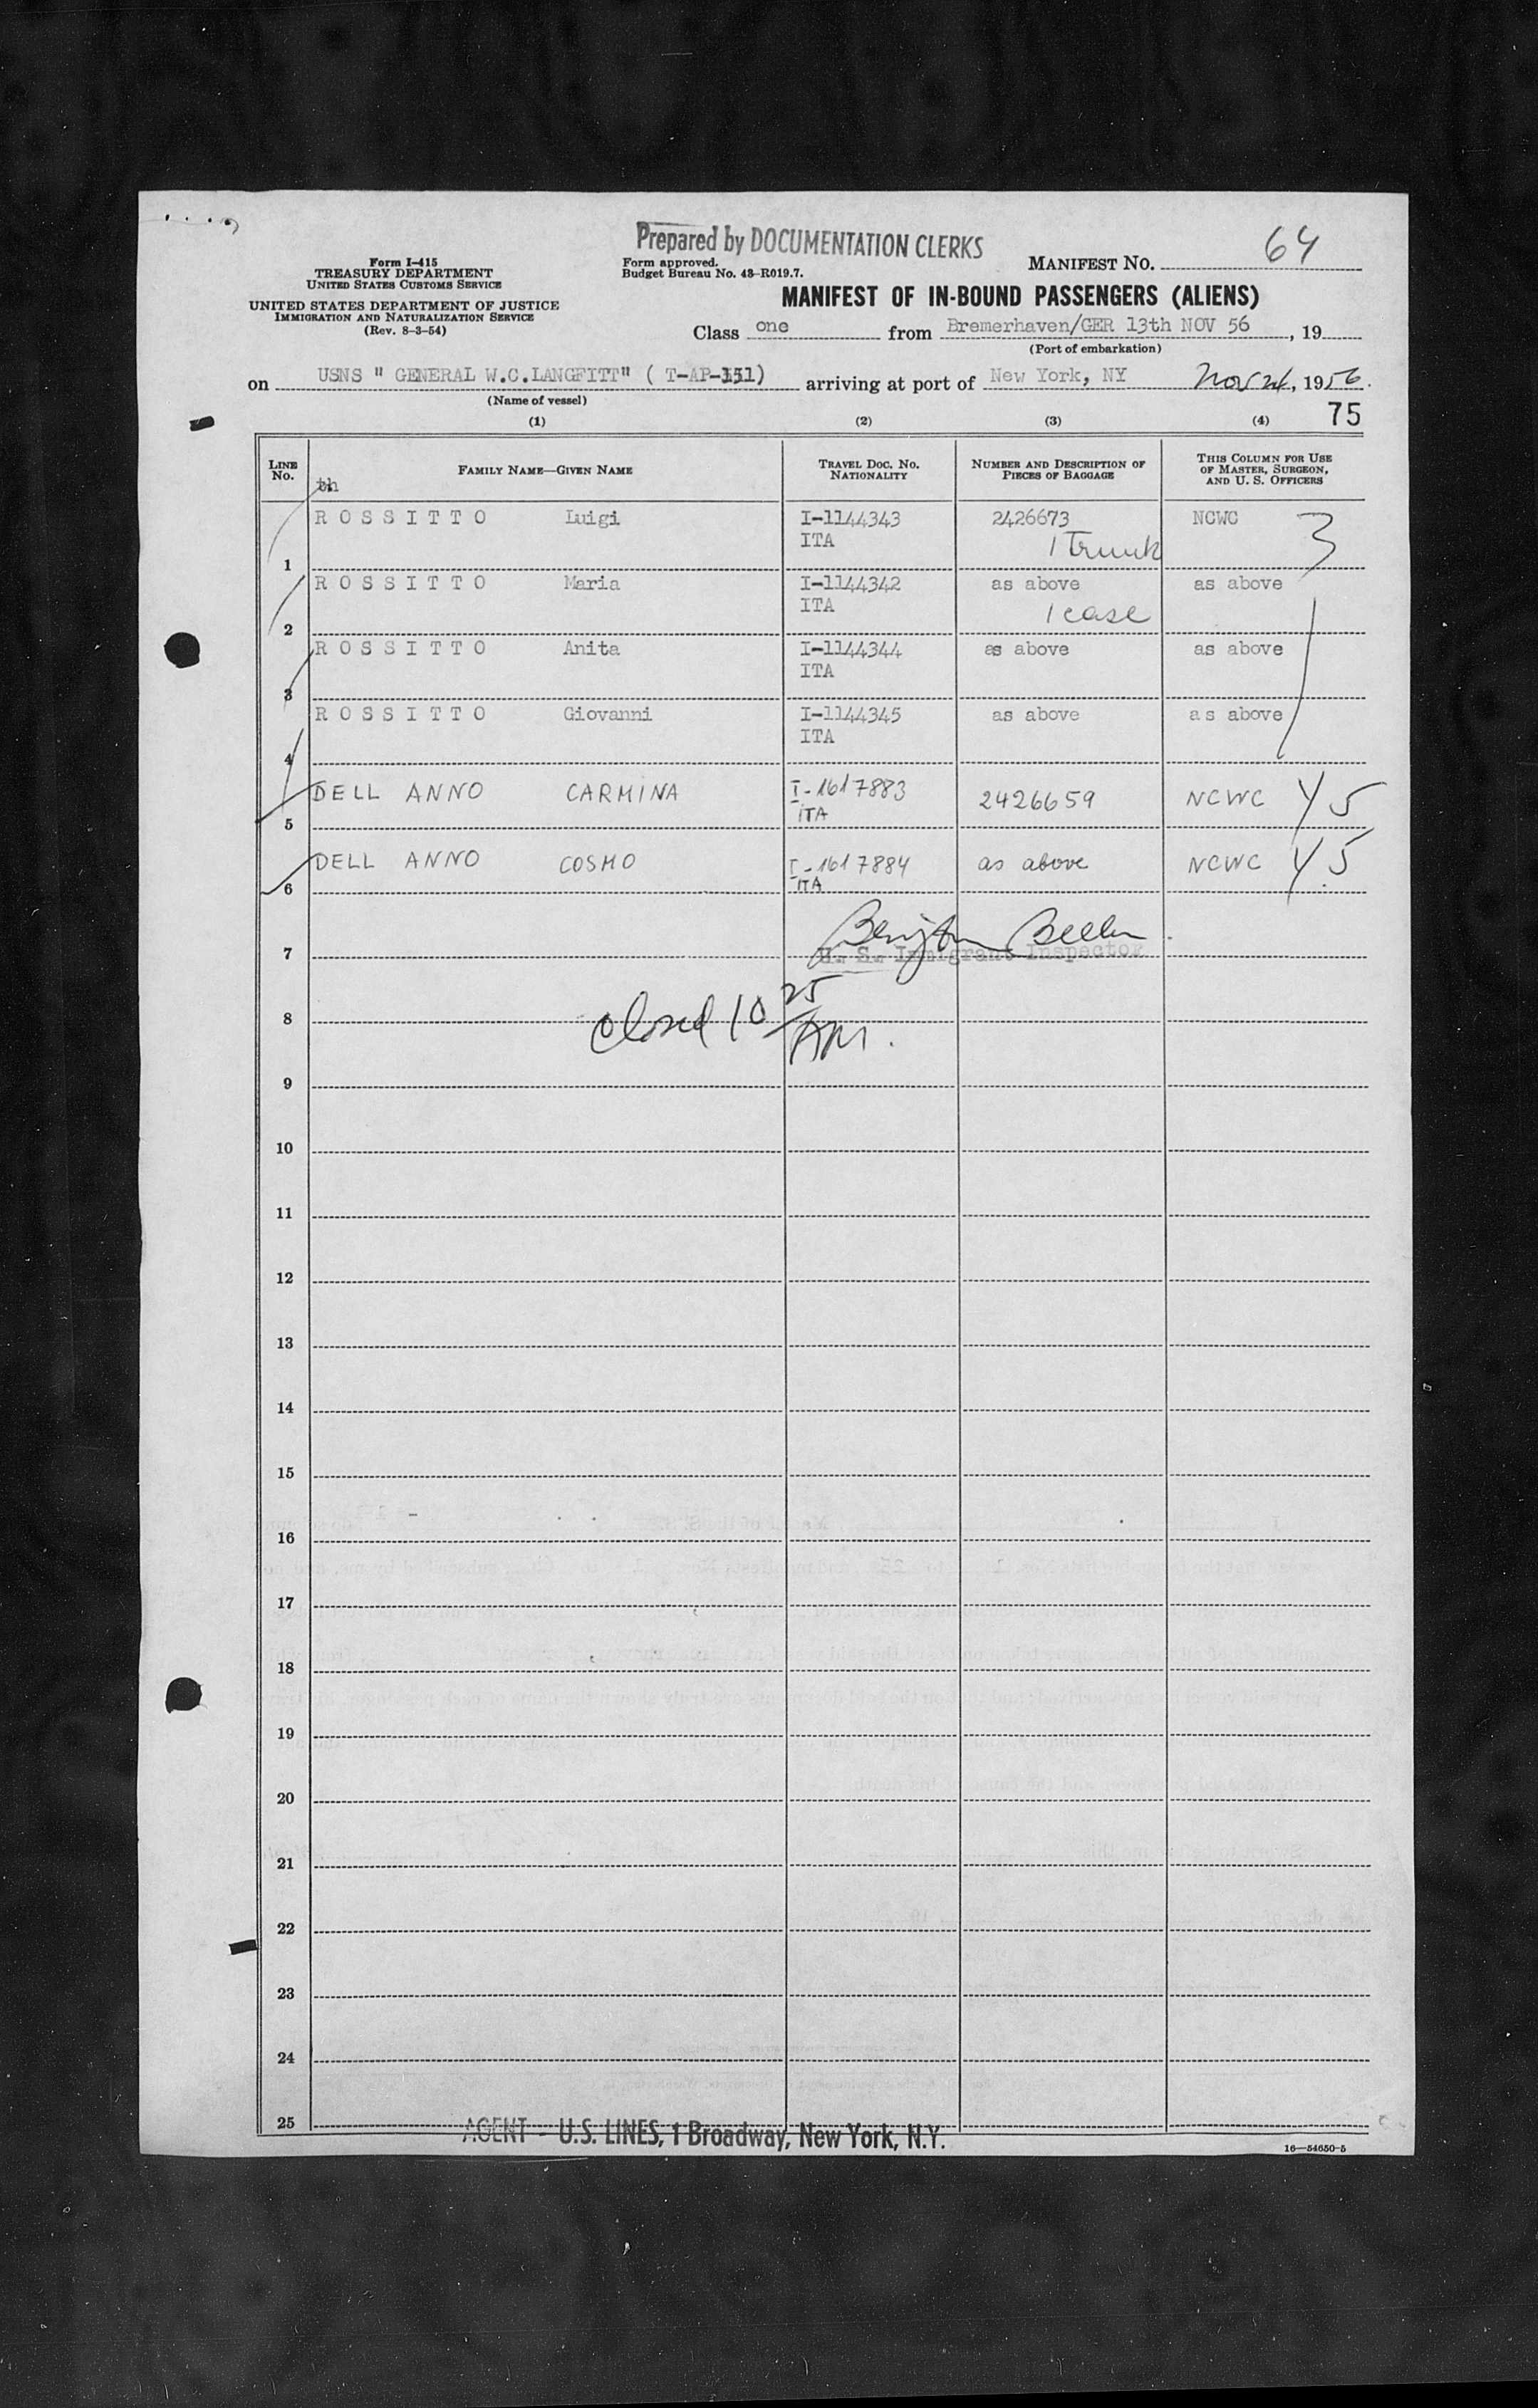 Prepared by DOCUMENTATION CLERKS
Form I-415
TREASURY DEPARTMENT
UNITED STATES CUSTOMS SERVICE
UNITED STATES DEPARTMENT OF JUSTICE
IMMIGRATION AND NATURALIZATION SERVICE
(Rev. 8-3-54)
Form approved.
Budget Bureau No. 43-R019.7.
MANIFEST NO. 64
MANIFEST OF IN-BOUND PASSENGERS (ALIENS)
Class one from Bremerhaven/GER 13th NOV 56, 19
(Port of embarkation)
on USNS " GENERAL W.C.LANGFITT" ( T-AP-151) arriving at port of New York, NY Nov 24, 1956.
(Name of vessel)
75
(1) (2) (3) (4)
LINE No. FAMILY NAME—GIVEN NAME TRAVEL DOC. NO. NATIONALITY NUMBER AND DESCRIPTION OF PIECES OF BAGGAGE THIS COLUMN FOR USE OF MASTER, SURGEON, AND U. S. OFFICERS
th
1 R O S S I T T O Luigi I-1144343 ITA 2426673 1 Trunk NCWC 3
2 R O S S I T T O Maria I-1144342 ITA as above 1 case as above
3 R O S S I T T O Anita I-1144344 ITA as above as above
4 R O S S I T T O Giovanni I-1144345 ITA as above as above
5 DELL ANNO CARMINA I-1617883 ITA 2426659 NCWC Y5
6 DELL ANNO COSMO I-1617884 ITA as above NCWC Y5
7 U. S. Immigrant Inspector
8 closed 10 25 AM.
9
10
11
12
13
14
15
16
17
18
19
20
21
22
23
24
25
AGENT - U.S. LINES, 1 Broadway, New York, N.Y.
16—54650-5